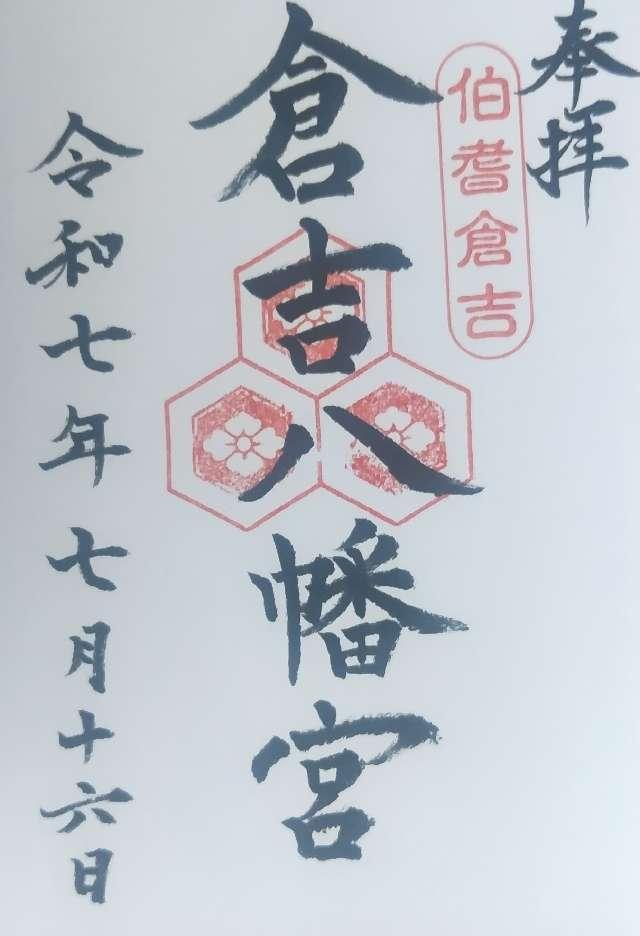 奉拝
伯耆倉吉
倉吉八幡宮
令和七年七月十六日